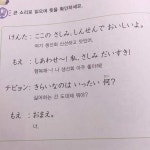 큰 소리로 읽으며 뜻을 확인하세요.
けんた : ここの さしみ、しんせんで おいしいよ。
여기 생선회 신선하고 맛있어.
もえ : しあわせ〜! 私、さしみ だいすき!
행복해~! 나 생선회 아주 좋아해!
チビョン : きらいなのは いったい 何?
싫어하는 건 도대체 뭐야?
もえ : おまえ。
너.